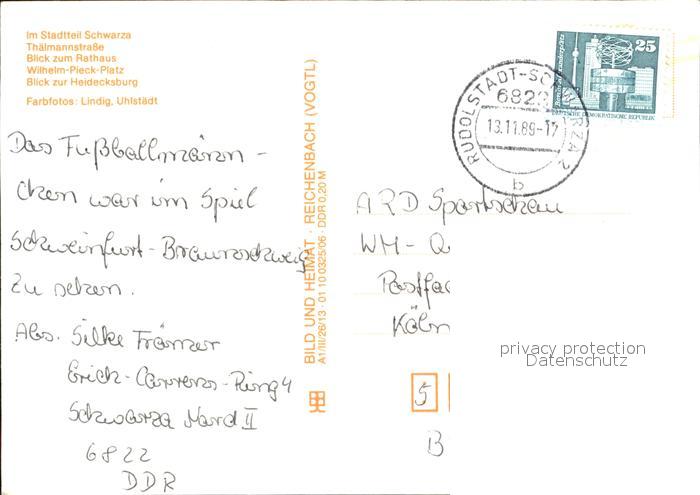 Im Stadtteil Schwarza
Thälmannstraße
Blick zum Rathaus
Wilhelm-Pieck-Platz
Blick zur Heidecksburg
Farbfotos: Lindig, Uhlstädt
Das Fußballmänn-
chen war im Spiel
Schweinfurt-Braunschweig
zu sehen.
Abs. Silke Främer
Erich-Correns-Ring 4
Schwarza Nord II
6822
DDR
BILD UND HEIMAT · REICHENBACH (VOGTL)
A1/III/26/13 · 01 10 0325/06 · DDR 0,20 M
25
DEUTSCHE DEMOKRATISCHE REPUBLIK
RUDOLSTADT-SCHWARZA 2
6822
13.11.89-17
b
ARD Sportschau
WM-Q
Postfac
Köln
5
B
privacy protection
Datenschutz